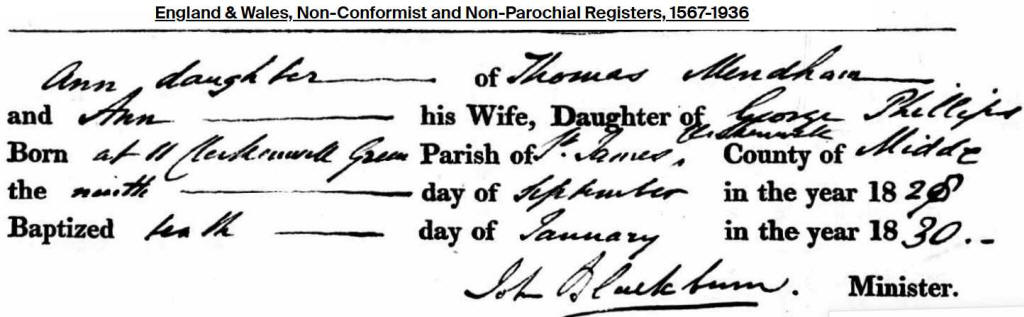 England & Wales, Non-Conformist and Non-Parochial Registers, 1567-1936
Ann daughter of Thomas Mendham
and Ann his Wife, Daughter of George Phillips
Born at 11 Clerkenwell Green Parish of St. James, Clerkenwell County of Middx
the ninth day of September in the year 1828
Baptized tenth day of January in the year 1830.
John Blackburn. Minister.